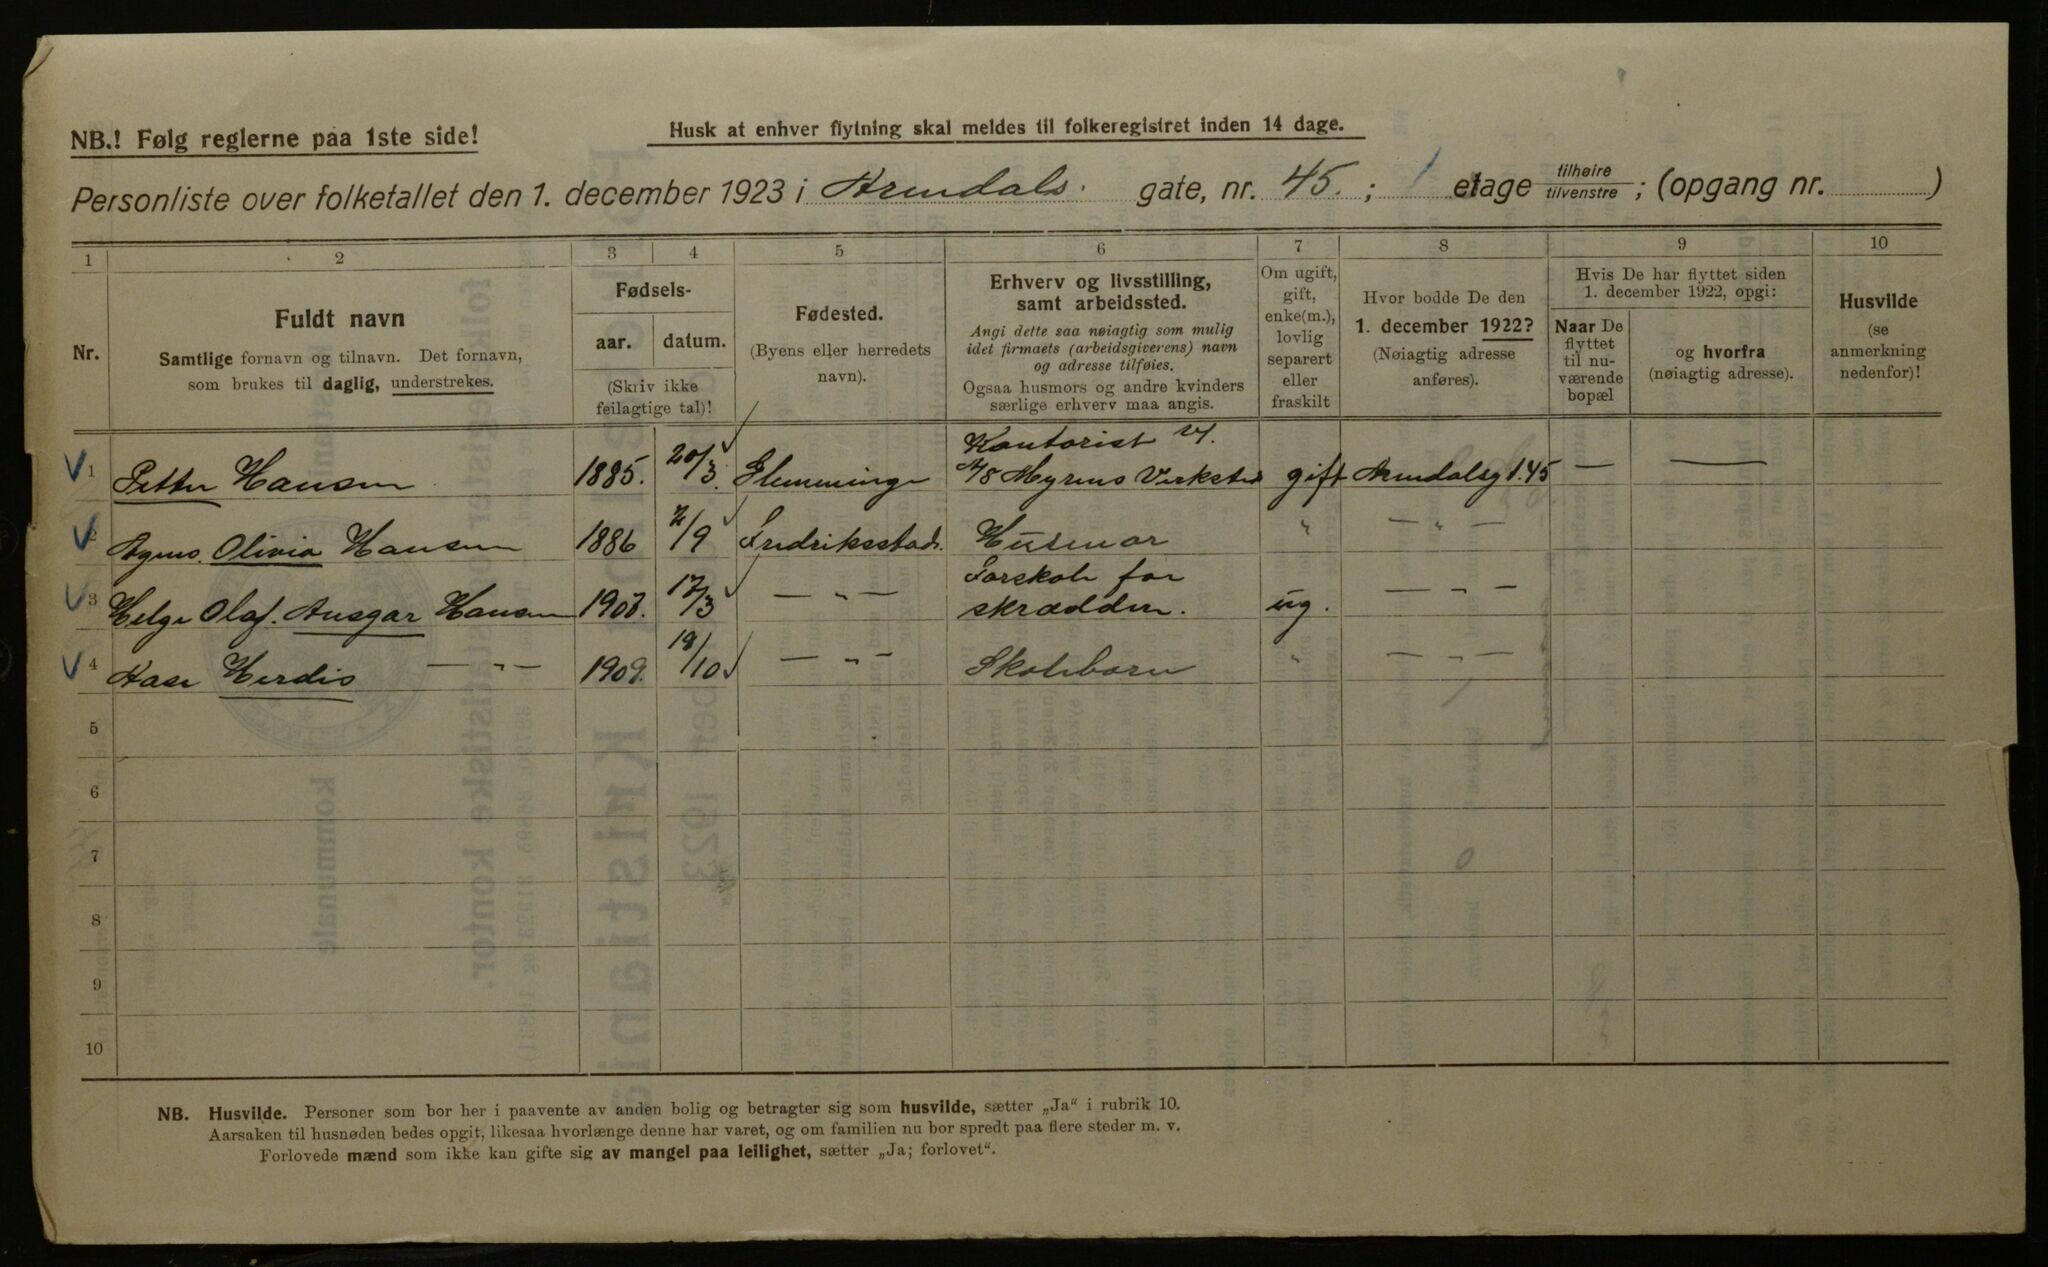 NB.! Følg reglerne paa 1ste side!
Husk at enhver flytning skal meldes til folkeregistret inden 14 dage.
Personliste over folketallet den 1. december 1923 i Arendals. gate, nr. 45. ; 1 etage tilhøire tilvenstre ; (opgang nr. )
1 2 3 4 5 6 7 8 9 10
Nr.
Fuldt navn
Samtlige fornavn og tilnavn. Det fornavn,
som brukes til daglig, understrekes.
Fødsels-
aar. datum.
(Skriv ikke
feilagtige tal)!
Fødested.
(Byens eller herredets
navn).
Erhverv og livsstilling,
samt arbeidssted.
Angi dette saa nøiagtig som mulig
idet firmaets (arbeidsgiverens) navn
og adresse tilføies.
Ogsaa husmors og andre kvinders
særlige erhverv maa angis.
Om ugift,
gift,
enke(m.),
lovlig
separert
eller
fraskilt
Hvor bodde De den
1. december 1922?
(Nøiagtig adresse
anføres).
Hvis De har flyttet siden
1. december 1922, opgi:
Naar De
flyttet
til nu-
værende
bopæl
og hvorfra
(nøiagtig adresse).
Husvilde
(se
anmerkning
nedenfor)!
1 Petter Hansen 1885. 20/3 Glemminge Kontorist v/. A/S Myrens Verksted gift Arendalsgt. 45 — —
2 Agnes. Olivia Hansen 1886 2/9 Fredriksstad. Husmor " — " —
3 Helge Olaf. Ansgar Hansen 17/3 — " — Forskole for skræddere. ug. — " —
4 Aase Herdis — " — 1909. 19/10 — " — Skolebarn " — " —
5
6
7
8
9
10
NB. Husvilde. Personer som bor her i paavente av anden bolig og betragter sig som husvilde, sætter „Ja" i rubrik 10.
Aarsaken til husnøden bedes opgit, likesaa hvorlænge denne har varet, og om familien nu bor spredt paa flere steder m. v.
Forlovede mænd som ikke kan gifte sig av mangel paa leilighet, sætter „Ja; forlovet".